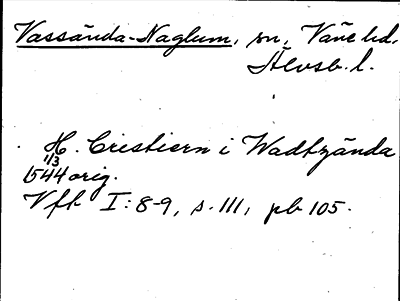 Vassända-Naglum, sn, Väne hd.
Älvsb. l.
H. Cristiern i Wadhzända
1/3
1544 orig.
Vft I:8-9, s. 111, pb 105.